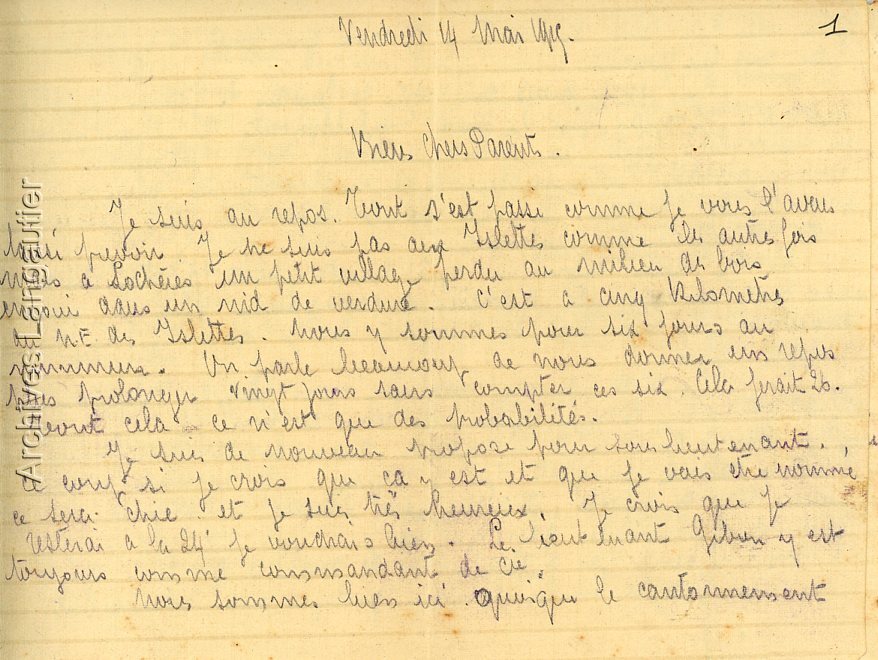 1
Vendredi 14 Mai 1915.
Biens chers Parents.
Je suis au repos. Tout s'est passé comme je vous l'avais
laissé prevoir. Je ne suis pas aux Islettes comme les autres fois
mais à Lochères un petit village perdu au milieu des bois
enfoui dans un nid de verdure. C'est à cinq kilomètres
au N.E. des Islettes. Nous y sommes pour six jours au
minimum. On parle beaucoup de nous donner un repos
plus prolongé vingt jours sans compter ces six. Cela ferait 26.
tout cela ce n'est que des probabilités.
Je suis de nouveau proposé pour sous lieutenant.
Ce coup si je crois que ça y est et que je vais être nommé
ce sera chic. et je suis très heureux. Je crois que je
resterai à la 24e je voudrais bien. Le lieutenant y est
toujours comme commandant de Cie.
Nous sommes bien ici. quoique le cantonnement
Archives_Lingautier